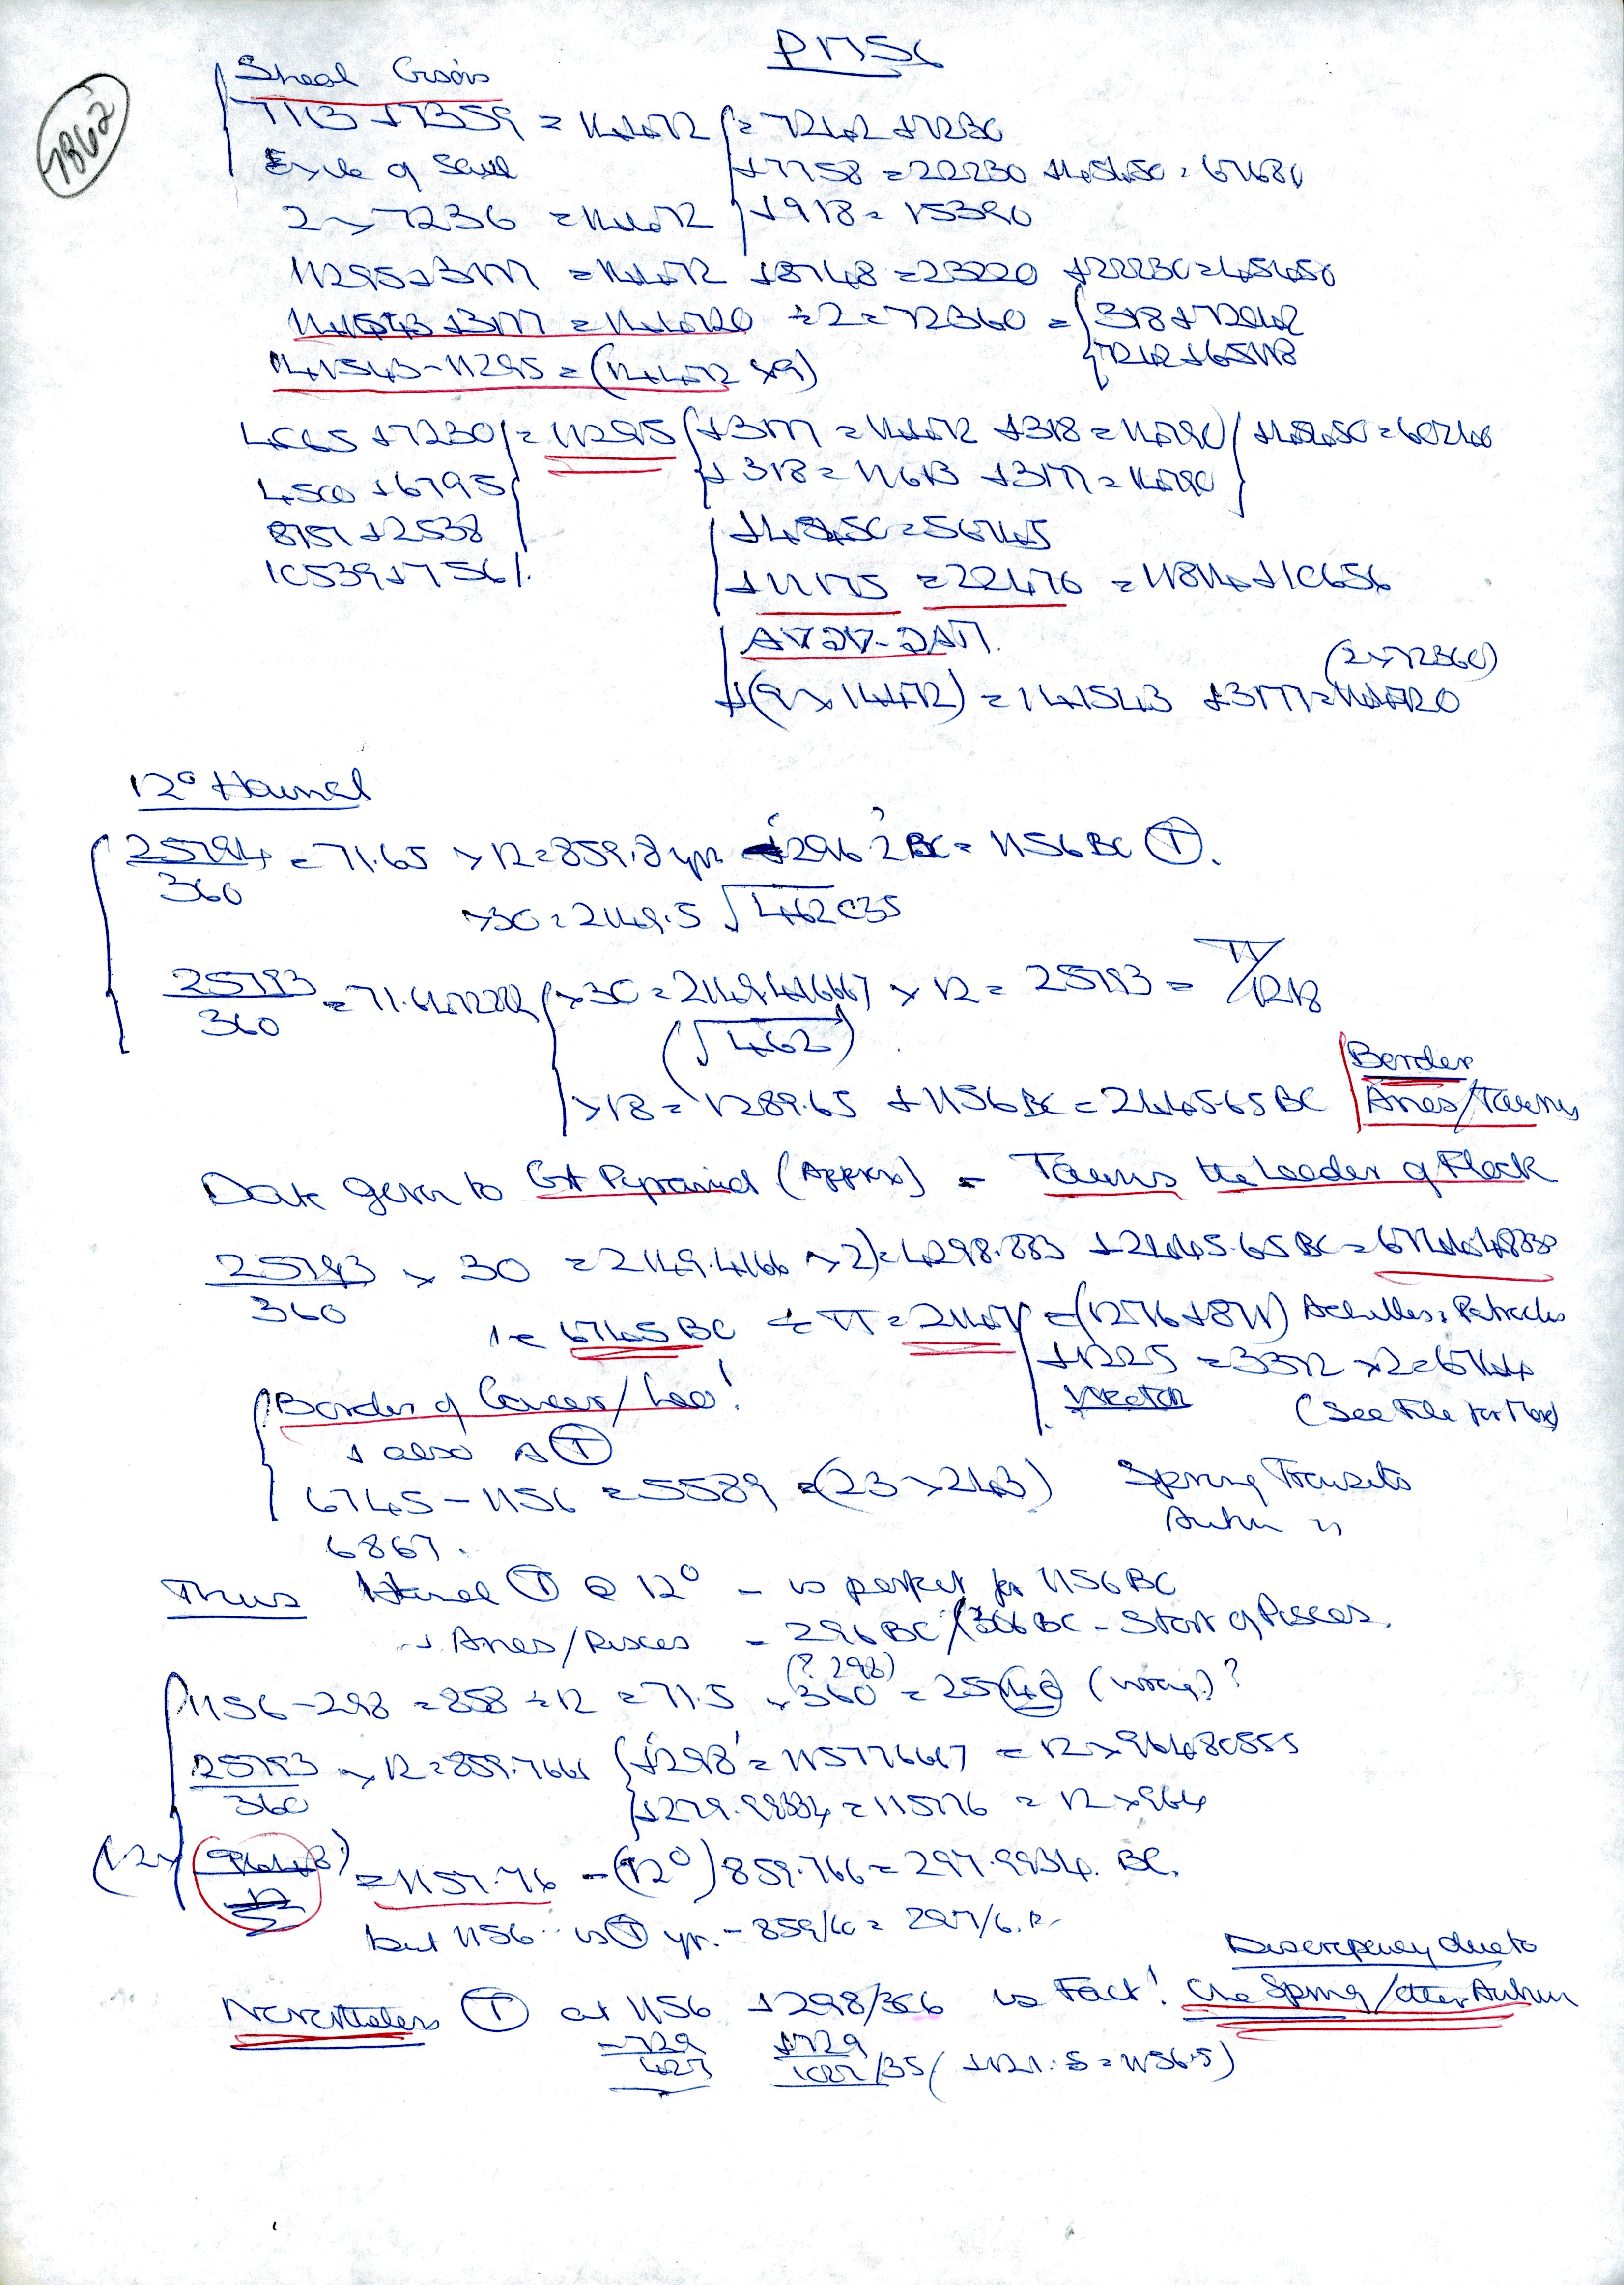 7862
Steal Grain
7113 + 7359 = 14472 = 7242 + 7230
Exile of Saul + 7758 = 22230 + 45450 = 67680
2 x 7236 = 14472 + 918 = 15390
11295 + 3177 = 14472 + 8748 = 23220 + 22230 = 45450
141543 + 3177 = 144720 ÷ 2 = 72360 = 318 + 72042
7242 + 65118
141543 - 11295 = (14472 x 9)
4065 + 7230 = 11295 + 3177 = 14472 + 318 = 14790 + 45450 = 60240
4500 + 6795 + 318 = 11613 + 3177 = 14790
8757 + 2538 + 45450 = 56745
10539 + 756 + 11175 = 22470 = 11814 + 10656
(2 x 72360)
+ (9 x 14472) = 141543 + 3177 = 144720
12° Hamal
25794/360 = 71.65 x 12 = 859.8 yrs + 296.2 BC = 1156 BC (T).
x 30 = 2149.5 √462035
25793/360 = 71.647222 x 30 = 2149.416667 x 12 = 25793 = π/1218
(√462)
x 18 = 1289.65 + 1156 BC = 2445.65 BC
Border
Aries/Taurus
Date given to Gt Pyramid (Approx) - Taurus the Leader of Flock
25793/360 x 30 = 2149.4166 x 2) = 4298.883 + 2445.65 BC = 6744.48333
ie 6745 BC ÷ π = 2147 = (1276 + 871) Achilles : Patroclus
+ 1225 = 3372 x 2 = 6744
Hector (See File for More)
Border of Cancer/Leo!
+ also A (T)
6745 - 1156 = 5589 = (23 x 243) Spring Transits
Autum "
6867.
Thus Hamal (T) @ 12° - is perfect for 1156 BC
+ Aries/Pisces - 296 BC/306 BC - Start of Pisces.
(? 298)
1156 - 298 = 858 ÷ 12 = 71.5 x 360 = 25740 (wrong)?
25793/360 x 12 = 859.7666 + '298' = 1157.76667 = 12 x 96.480555
+ 279.99334 = 1157.76 = 12 x 964
= 1157.76 - (12°) 859.766 = 297.9934. BC.
but 1156 is (T) yr. - 859/60 = 297/6.
Discrepancy due to
Nevertheless (T) at 1156 + 298/306 is Fact! One Spring/other Autum
- 729 + 729
427 1027/35 (+ 121.5 = 1156.5)